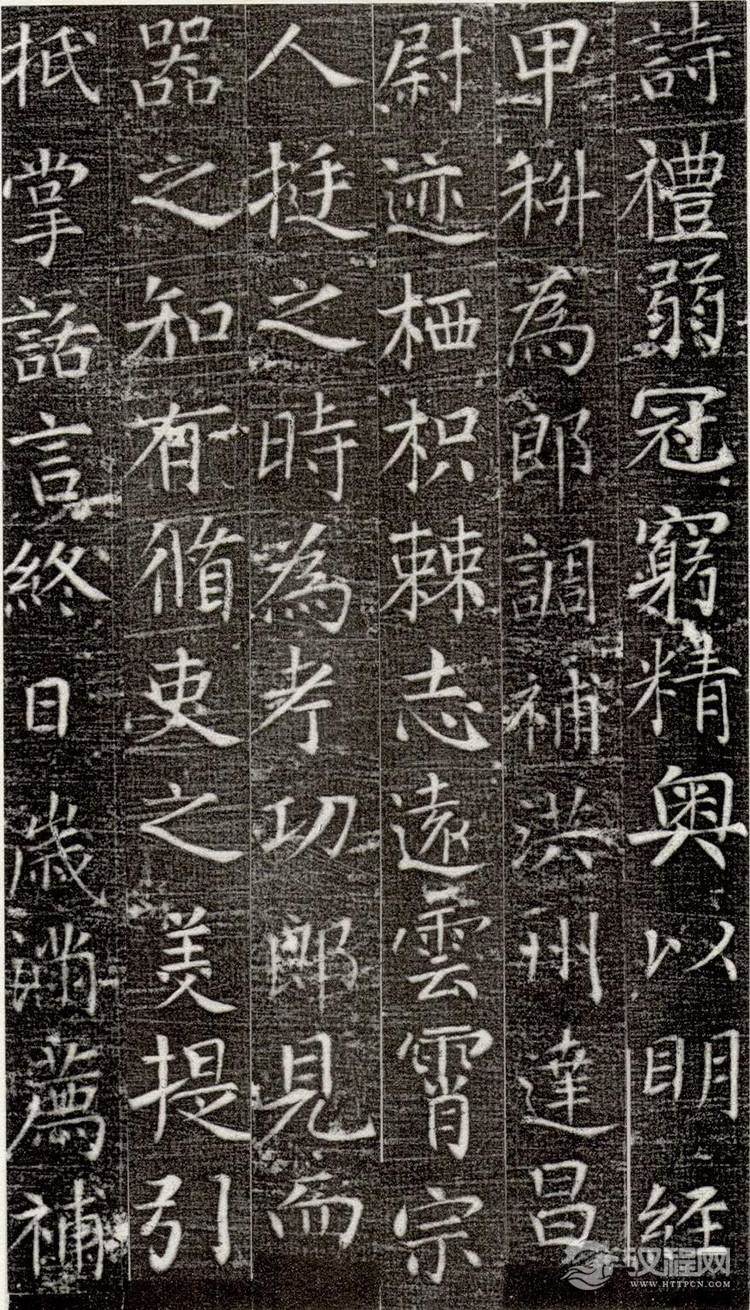 詩禮弱冠窮精奥以明經
甲科為郎調補洪州建昌
尉迹栖枳棘志遠雲霄宗
人挺之時為考功郎見而
器之知有脩吏之美提引
抵掌話言終日歲滿薦補
汉程网
WWW.HTTPCN.COM